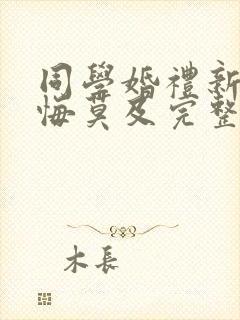 同學婚禮新
悔莫及完整
木長